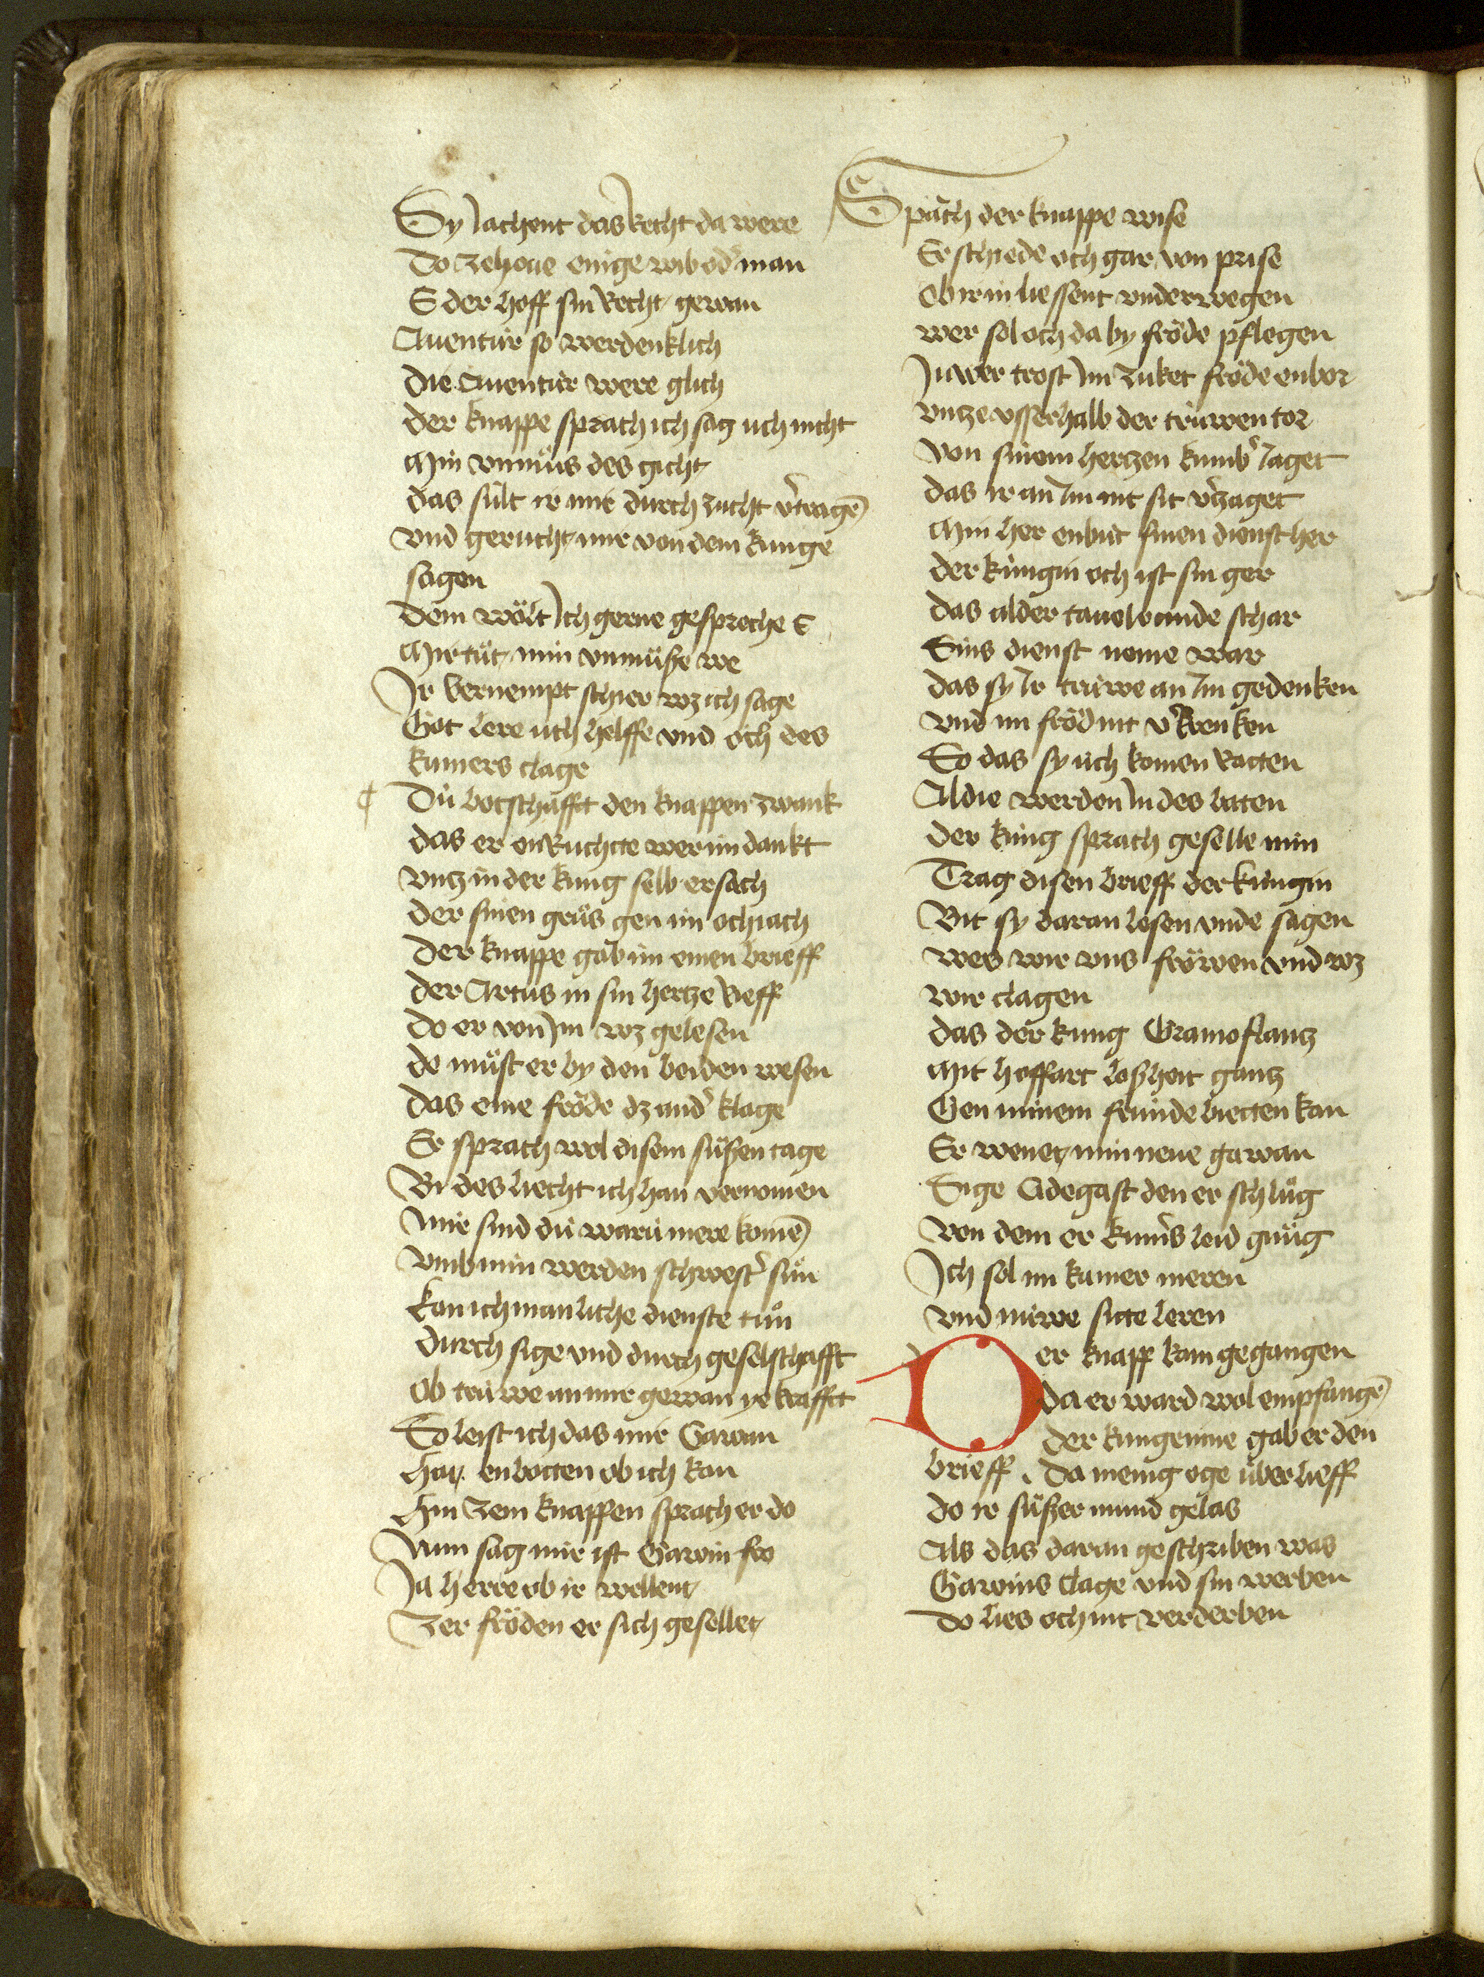 Sy Jachent das Recht da were
Do zehoue einige wib od' man
E der hoff sin Recht gewan
Auentúr so werdenklich
Die Auentúr were glich
Der knappe sprach ich sag úch nicht
Min vnmůs des gicht
Das súlt ir mir durch zucht v'tragē
Vnd gerucht mir von dem kunge
sagen
Dem wölt Jch gerne gespreche E
Mir tůt min vnmůße we
Jr vernempt schier wz ich sage
Got lere úch helffe vnd och des
kumers clage
¶ Dú botschafft den knappen zwank
Das er enRuchte wer im dankt
Vntz in der kúng selb ersach
Der sinen grůs gen im och iach
Der knappe gab im einen brieff
Der Artus in sin hertze Rieff
Do er von Jm wz gelesen
De můst er by den beiden wesen
Das eine fröde dz and' klage
Er sprach wol disem sůßen tage
Bi des liecht ich han vernomen
Mir sind dú warú mere komē
Vmb min werden schwest' sůn
Kan ich manliche dienste tůn
Durch sige vnd durch geselschafft
Ob trúwe an mir gewan ye krafft
So leist ich das mir Gawan
Hat enbotten ob ich kan
Hin zem knappen sprach er do
Nun sag mir ist Gawin fro
Ja herre ob ir wellent
Zer fröden er sich gesellet
Sprach der knappe wise
Er schiede och gar von prise
Ob ir in liessent vnderwegen
Wer sol och da by fröde pflegen
Juwer trost Jm zuket fröde enbor
Vntze vsserhalb der trúwen tor
Von sinem hertzen kumb' Jaget
Das ir an Jm nit sit v'zaget
Min her enbút sinen dienst her
Der kúngin och ist sin ger
Das alder tauelrunde schar
Sins dienst neme war
Das sy Jr trúwe an Jm gedenken
Vnd im fröd nit v'krenken
So das sy úch komen Ratten
Al die werden In des baten
Der kúng sprach geselle min
Trag disen brieff der kúngin
Bit sy daran lesen vnde sagen
Wes wir vns fröwen vnd wz
wir clagen
Das der kung Gramoflantz
Mit hoffart loßheit gantz
Gen minem frúnde bietten kan
Er wenet min neue gawan
Sige Cidegast den er schlůg
Von dem er kum's leid gnůg
Jch sol im kumer meren
Vnd núwe sitte leren
Der knapp kam gegangen
Da er ward wol empfangē
Der kungeinne gab er den
brieff . Da menig oge úber lieff
Do ir sůßer mund gelas
Als das daran geschriben was
Gawins clage vnd sin werben
Do lies och nit verderben